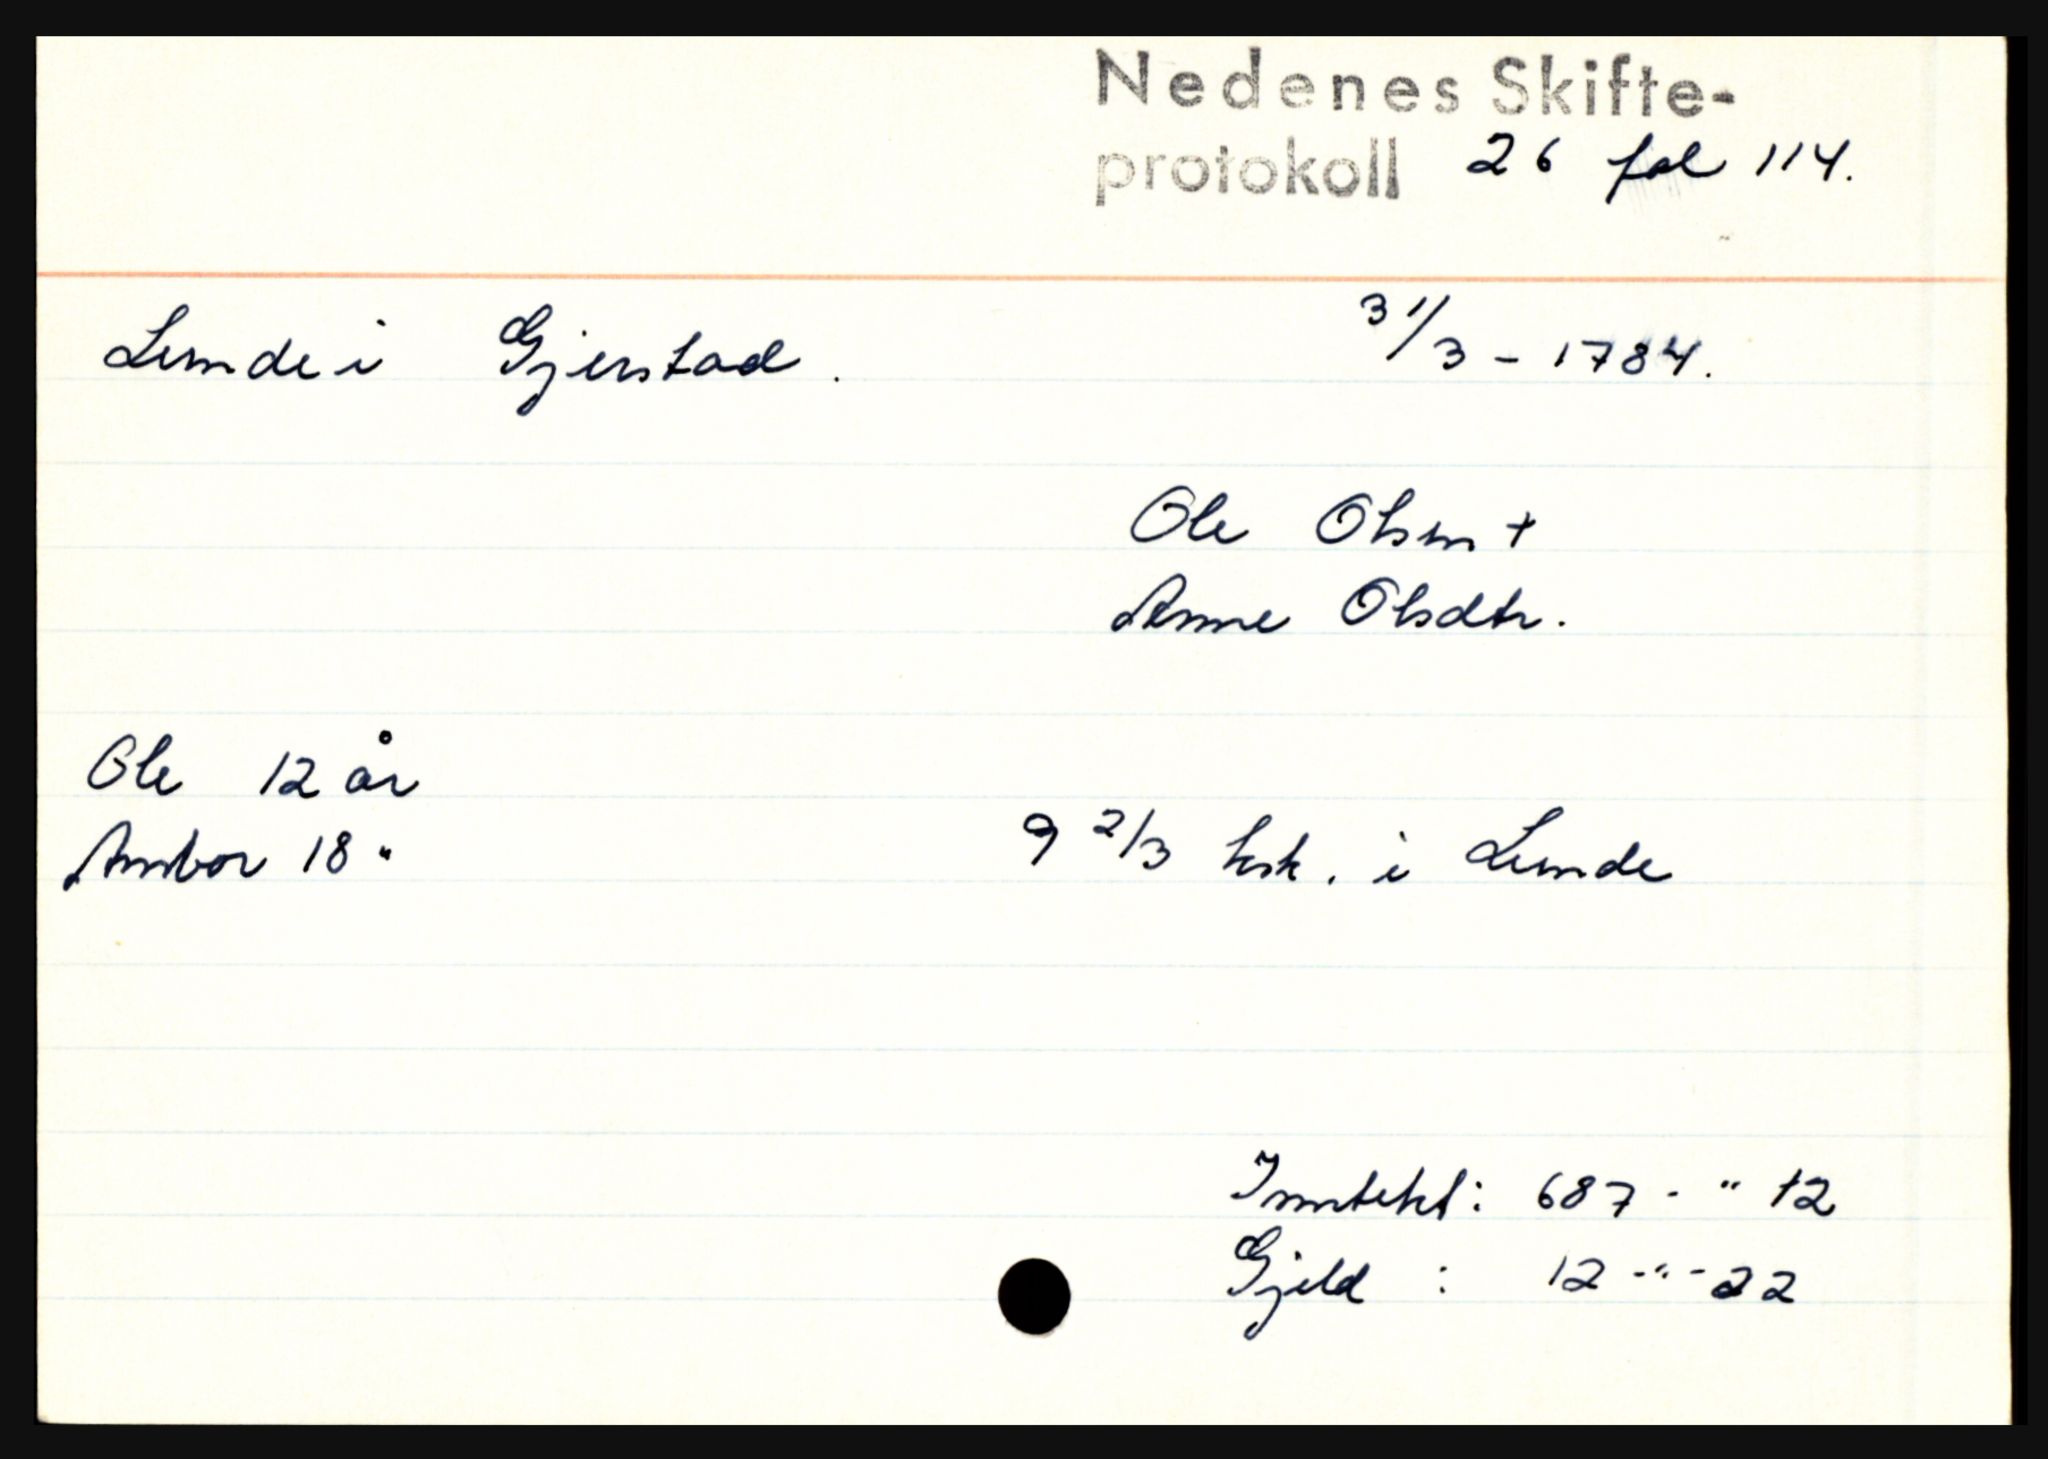 Nedenes Skifte-
protokoll 26 fol 114.
Lunde i Gjerstad. 31/3 - 1784.
Ole Olsen +
Anne Olsdtr.
Ole 12 år
Annbor 18 "
9 2/3 ksk. i Lunde
Inntekt: 687 - " 12
Gjeld : 12 - " - 22